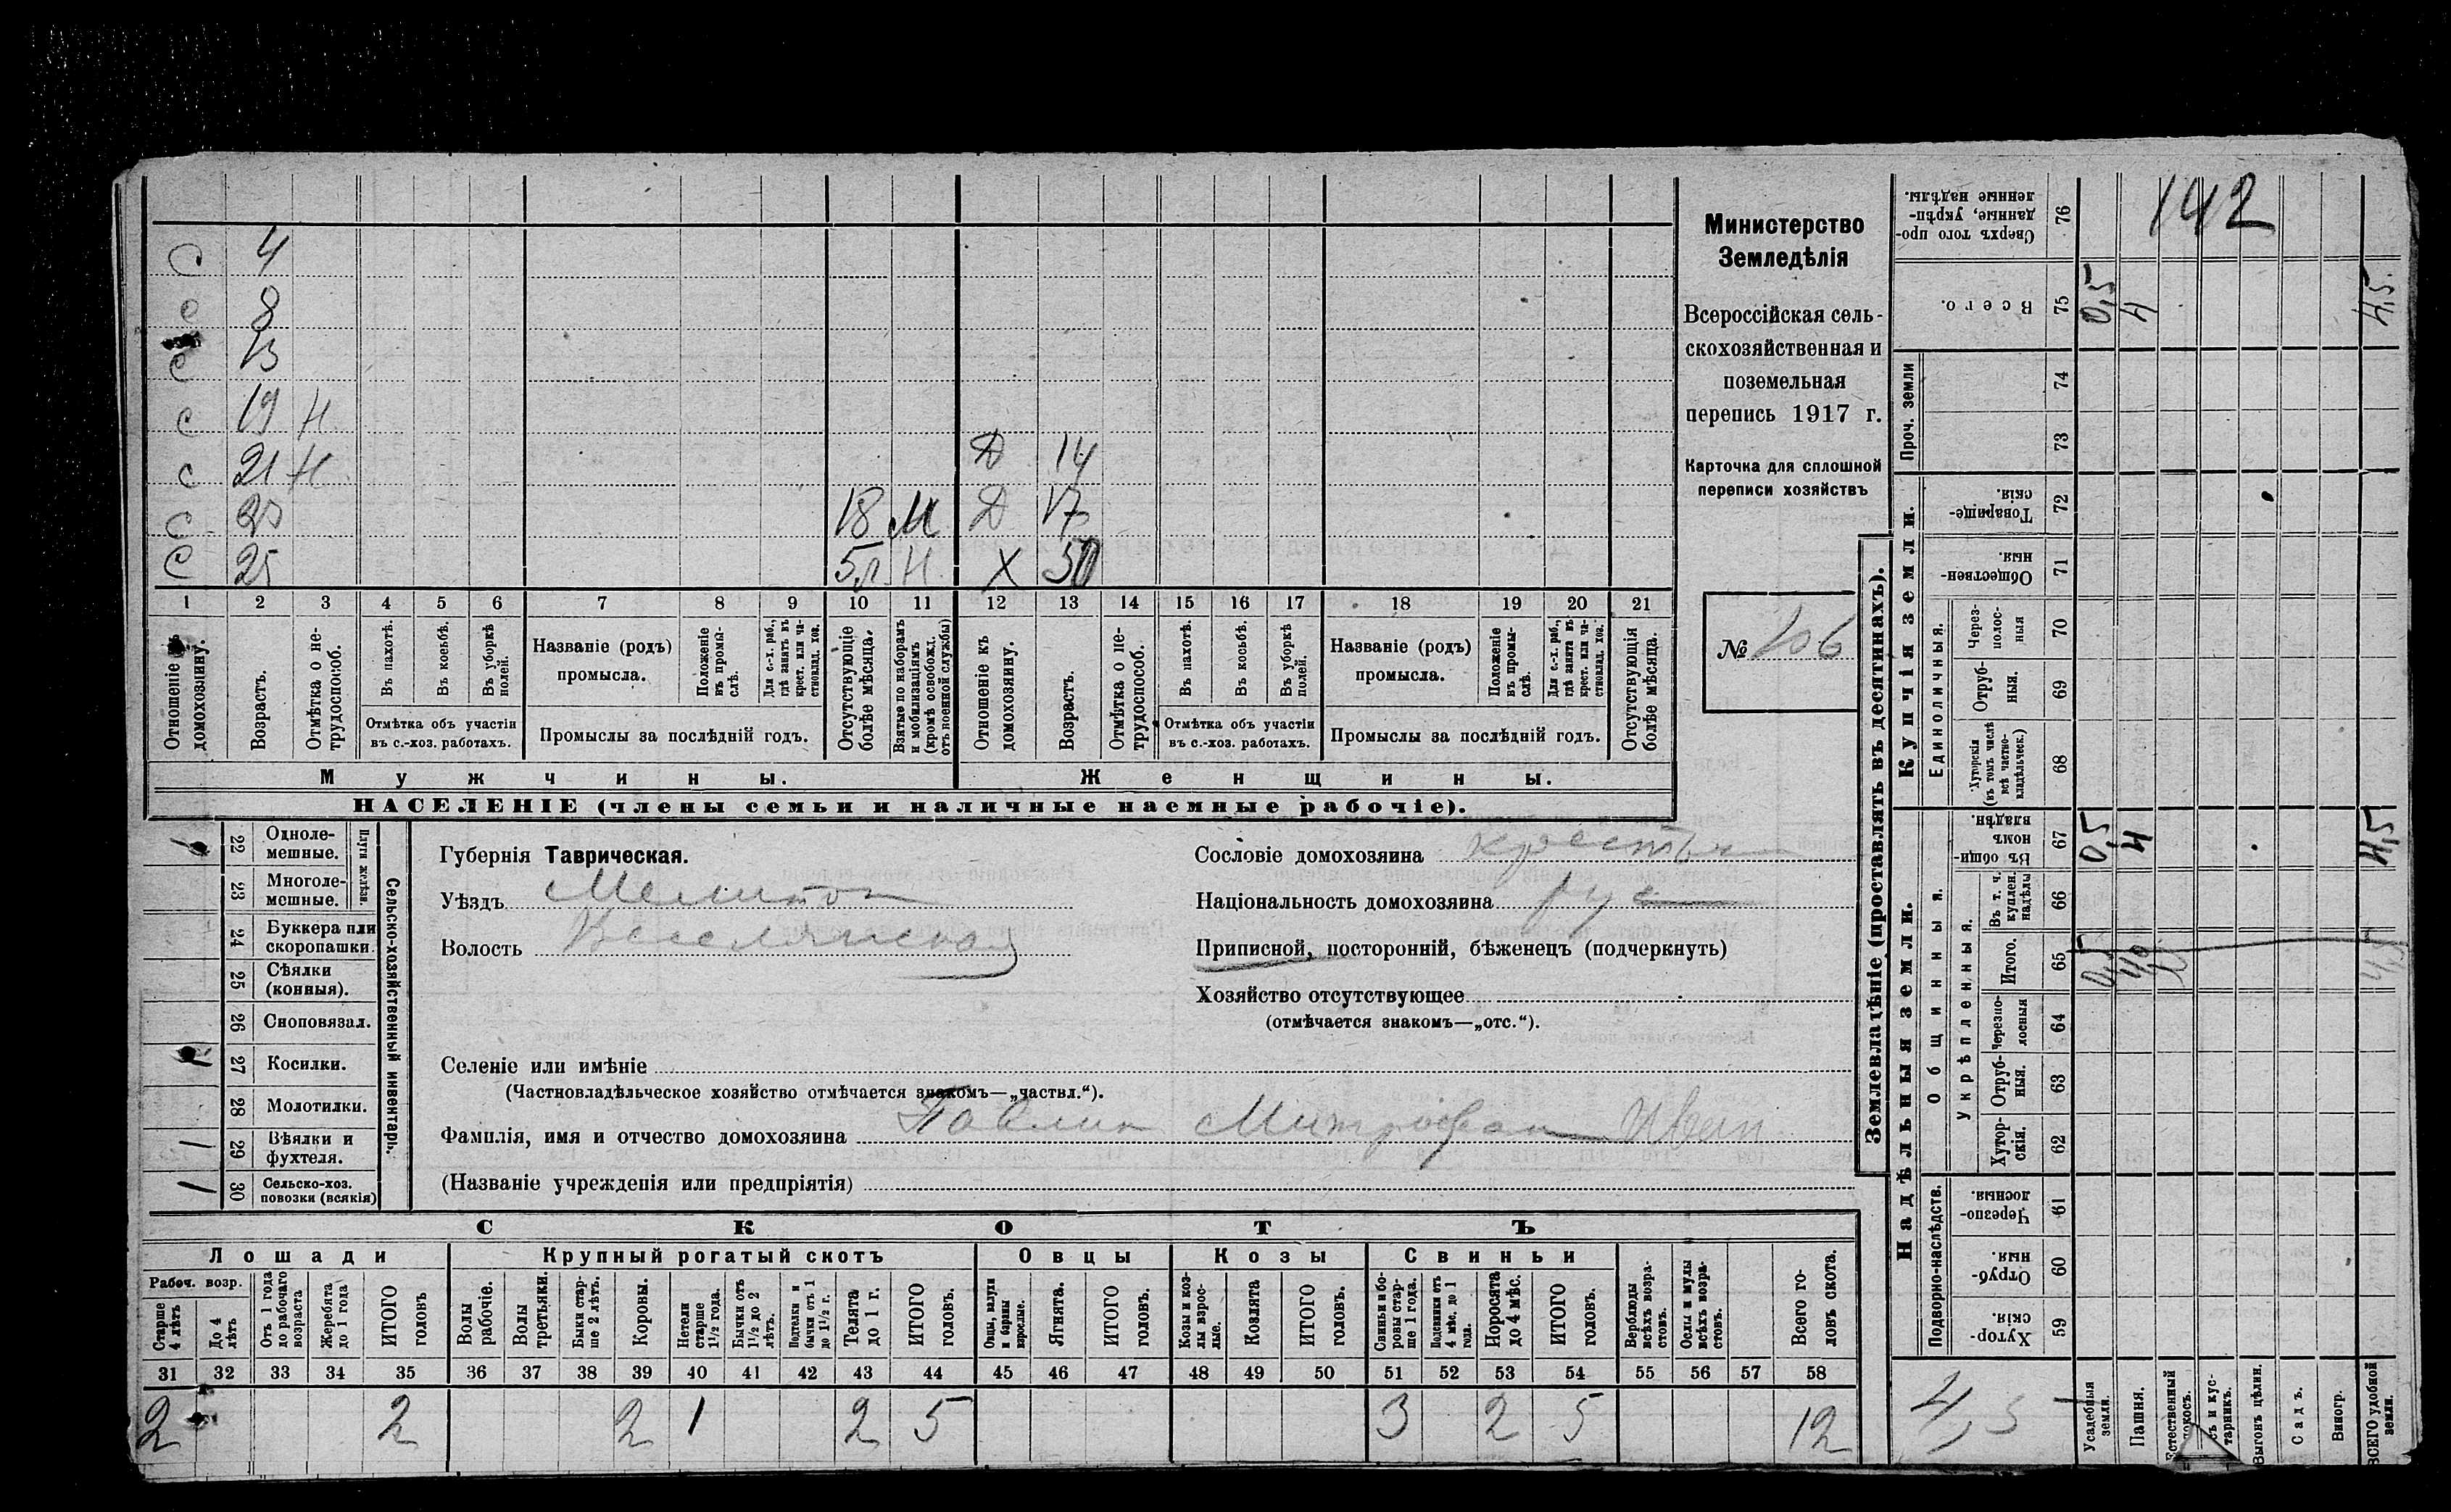 142
Министерство
Земледѣлія
Всероссійская сель-
скохозяйственная и
поземельная
перепись 1917 г.
Карточка для сплошной
переписи хозяйствъ
№ 106
С 4
с 8
с 13
с 19 Н
с 21 Н Д 14
С 23 18 М Д 17
С 25 5 л. Н Х 50
1 2 3 4 5 6 7 8 9 10 11 12 13 14 15 16 17 18 19 20 21
Отношеніе къ домохозяину.
Возрастъ.
Отмѣтка о не-трудоспособ.
Въ пахотѣ.
Въ косьбѣ.
Въ уборкѣ полей.
Отмѣтка объ участіи
въ с.-хоз. работахъ.
Названіе (родъ)
промысла.
Положеніе въ промы-слѣ.
Для с.-х. раб., гдѣ занятъ въ крест. или ча-стновлад. хоз.
Промыслы за послѣдній годъ.
Отсутствующіе болѣе мѣсяца.
Взятые по наборамъ и мобилизаціямъ (кромѣ освобожд. отъ военной службы)
Отношеніе къ домохозяину.
Возрастъ.
Отмѣтка о не-трудоспособ.
Въ пахотѣ.
Въ косьбѣ.
Въ уборкѣ полей.
Отмѣтка объ участіи
въ с.-хоз. работахъ.
Названіе (родъ)
промысла.
Положеніе въ промы-слѣ.
Для с.-х. раб., гдѣ занята въ крест. или ча-стновлад. хоз.
Промыслы за послѣдній годъ.
Отсутствующія болѣе мѣсяца.
Мужчины. Женщины.
НАСЕЛЕНІЕ (члены семьи и наличные наемные рабочіе).
22 Одноле-мешные.
23 Многоле-мешные.
Плуги желѣз.
24 Буккера или скоропашки.
25 Сѣялки (конныя).
26 Сноповязал.
27 Косилки.
28 Молотилки.
29 Вѣялки и фухтеля.
30 Сельско-хоз. повозки (всякія)
Сельско-хозяйственный инвентарь.
Губернія Таврическая.
Уѣздъ Мелитоп
Волость Веселянская
Селеніе или имѣніе
(Частновладѣльческое хозяйство отмѣчается знакомъ—„частвл.“).
Фамилія, имя и отчество домохозяина Павлин Митрофан Иван
(Названіе учрежденія или предпріятія)
Сословіе домохозяина крестьян
Національность домохозяина рус
Приписной, посторонній, бѣженецъ (подчеркнуть)
Хозяйство отсутствующее
(отмѣчается знакомъ—„отс.“).
СКОТЪ
Лошади Крупный рогатый скотъ Овцы Козы Свиньи
Рабоч. возр.
Старше 4 лѣтъ
До 4 лѣтъ
Отъ 1 года до рабочаго возраста
Жеребята до 1 года
ИТОГО головъ
Волы рабочіе.
Волы третьяки.
Быки стар-ше 2 лѣтъ.
Коровы.
Нетели старше 1½ года.
Бычки отъ 1½ до 2 лѣтъ.
Подтелки и бычки отъ 1 до 1½ г.
Телята до 1 г.
ИТОГО головъ.
Овцы, валухи и бараны взрослые.
Ягнята.
ИТОГО головъ.
Козы и коз-лы взрос-лые.
Козлята
ИТОГО головъ.
Свиньи и бо-ровы стар-ше 1 года.
Подсвинки отъ 4 мѣс. до 1 года.
Поросята до 4 мѣс.
ИТОГО головъ.
Верблюды всѣхъ возра-стовъ.
Ослы и мулы всѣхъ возра-стовъ.
Всего го-ловъ скота.
31 32 33 34 35 36 37 38 39 40 41 42 43 44 45 46 47 48 49 50 51 52 53 54 55 56 57 58
2 2 2 1 2 5 3 2 5 12
Землевладѣніе (проставлять въ десятинахъ).
Сверхъ того про-данные, укрѣп-ленные надѣлы. 76
Всего. 75 0,5 4 4,5
Проч. земли 74 73
Купчія земли.
Товарище-скія. 72
Обществен-ныя. 71
Единоличныя.
Через-полос-ныя 70
Отруб-ныя. 69
Хуторскія (въ томъ числѣ всѣ частно-владѣльческ.) 68
Надѣльныя земли.
Общинныя.
Въ общин-номъ владѣн. 67 0,5 4 4,5
Укрѣпленныя.
Въ т. ч. куплен. надѣлы 66
Итого. 65
Черезпо-лосныя 64
Отруб-ныя. 63
Хутор-скія. 62
Подворно-наслѣдств.
Черезпо-лосныя. 61
Отруб-ныя. 60
Хутор-скія. 59
4,5
Усадебная земли.
Пашня.
Естественный
Выгонъ цѣлин.
Садъ.
Виногр.
ВСЕГО удобной земли.